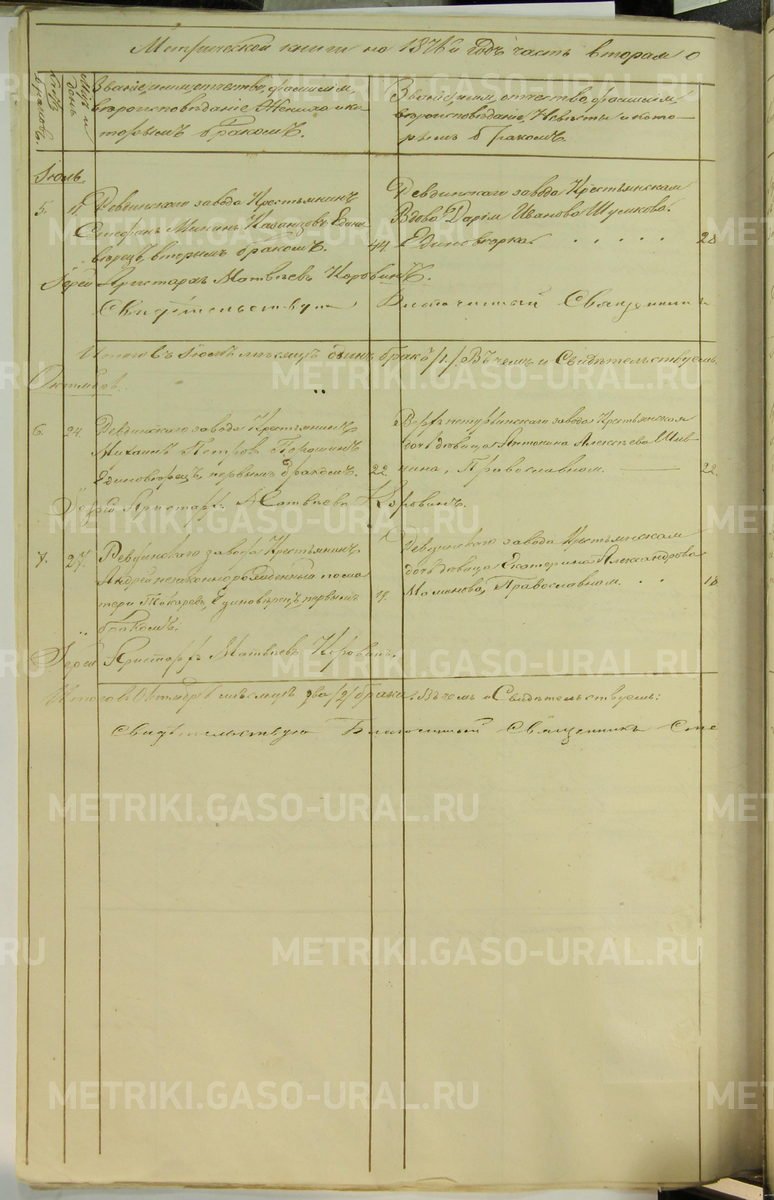 Метрической книги на 1876й годъ часть вторая о
Счетъ браковъ.
Мѣсяцъ и день
Званіе, имя, отчество, фамилія,
вѣроисповѣданіе Жениха и ко
торымъ бракомъ.
Званіе, имя, отчество, фамилія,
вѣроисповѣданіе Невѣсты и кото-
рымъ бракомъ.
Іюль.
5. 11. Ревдинскаго завода Крестьянинъ
Казанцовъ Едино
вѣрецъ, вторымъ бракомъ. 44.
Ревдинскаго завода Крестьянская
Вдова Дарія Иванова Шумкова.
Единовѣрка. 28
Іерей Аристархъ Матвѣевъ Коровинъ.
Свидѣтельствую Благочинный Священникъ
Итого въ Іюлѣ мѣсяцѣ одинъ бракъ /1/. Въ чемъ и Свидѣтельствуемъ
Октябрь.
6. 24 Ревдинскаго завода Крестьянинъ
Михаилъ Петровъ
Единовѣрецъ, первымъ бракомъ. 22.
Верхъ завода Крестьянская
дочь дѣвица Антонина Алексѣева
Православная. 22.
Іерей Аристархъ Матвѣевъ Коровинъ.
7. 27. Ревдинскаго завода Крестьянинъ
Андрей незаконнорожденный по ма
тери Токаревъ, Единовѣрецъ, первымъ
бракомъ.
Ревдинскаго завода Крестьянская
дочь дѣвица Екатерина Александрова
Мамонова, Православная. 18
Іерей Аристархъ Матвѣевъ Коровинъ.
Итого въ Октябрѣ мѣсяцѣ два /2/ брака. Въ чемъ и Свидѣтельствуемъ:
Свидѣтельствую Благочинный Священникъ Сте
METRIKI.GASO-URAL.RU